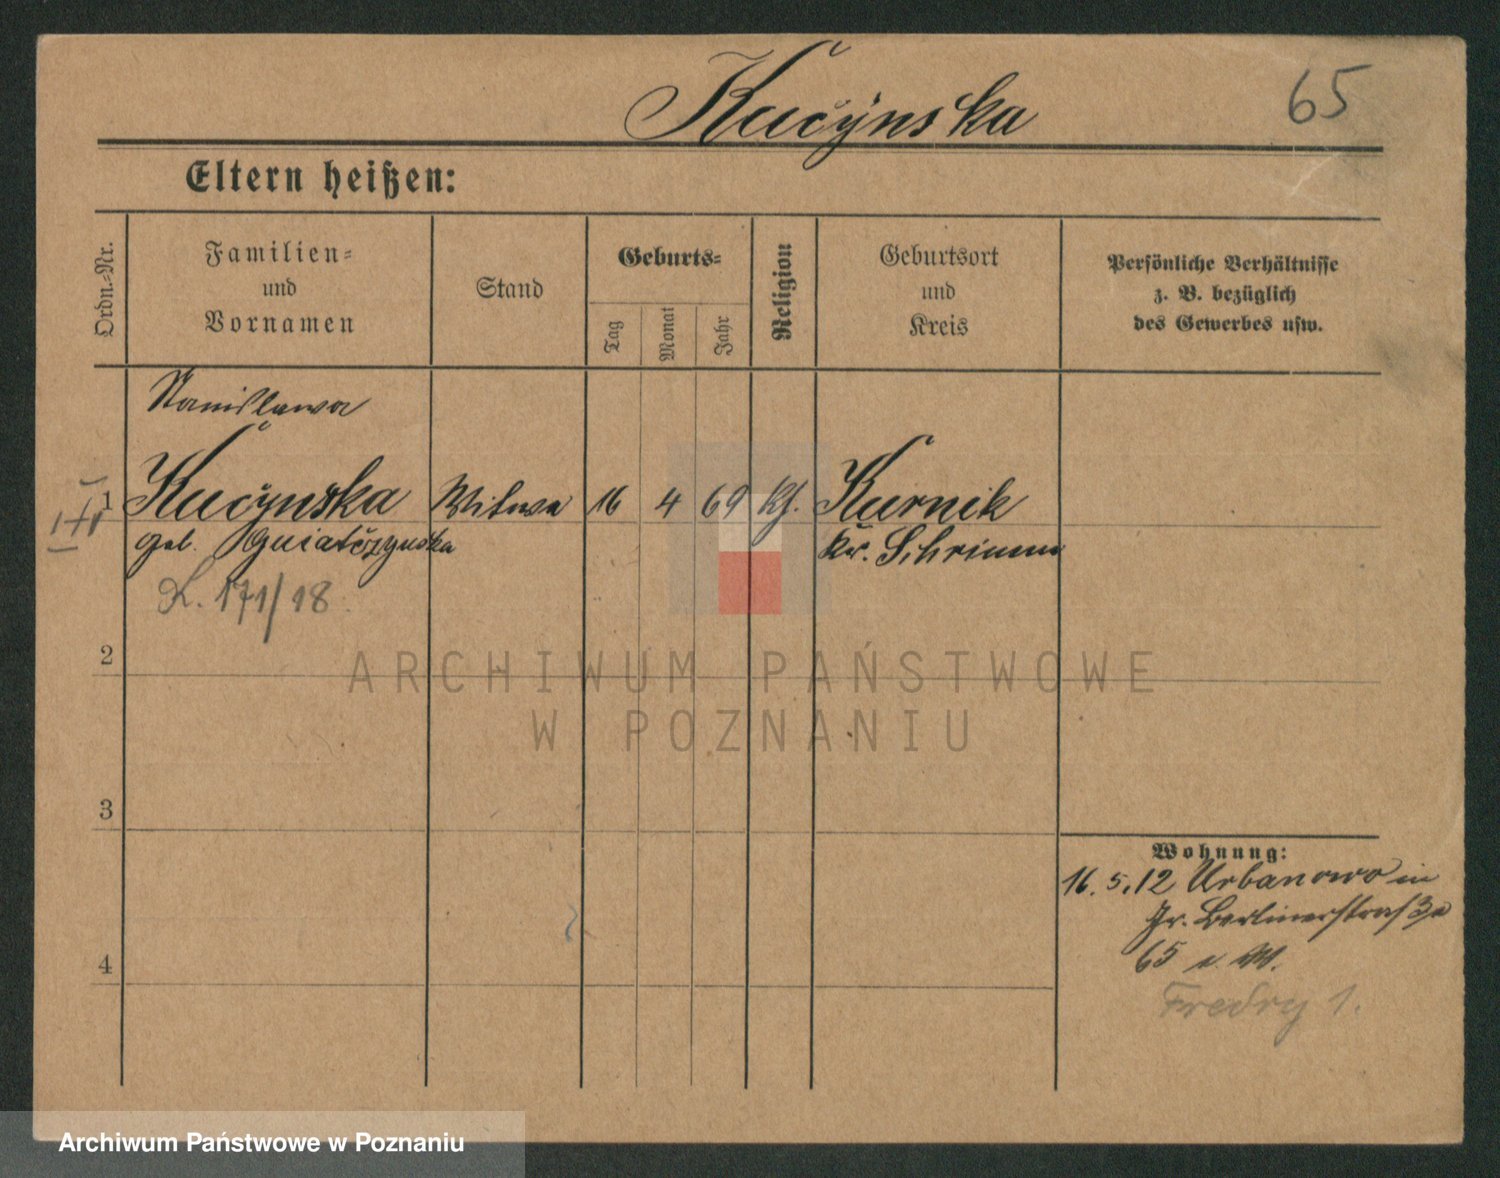 Kucýnska
65
Eltern heißen:
Ordn.-Nr.
Familien-
und
Vornamen
Stand
Geburts-
Tag
Monat
Jahr
Religion
Geburtsort
und
Kreis
Persönliche Verhältnisse
z. B. bezüglich
des Gewerbes usw.
Stanislawa
1 Kucynska Witwe 16 4 69 Kf. Kurnik
geb. Kr. Schrimm
L. 171/18
2
3
4
Wohnung:
16. 5. 12 Urbanowo in
Gr. Berlinerstraße
65 v. W.
Fredry 1.
ARCHIWUM PAŃSTWOWE
W POZNANIU
Archiwum Państwowe w Poznaniu